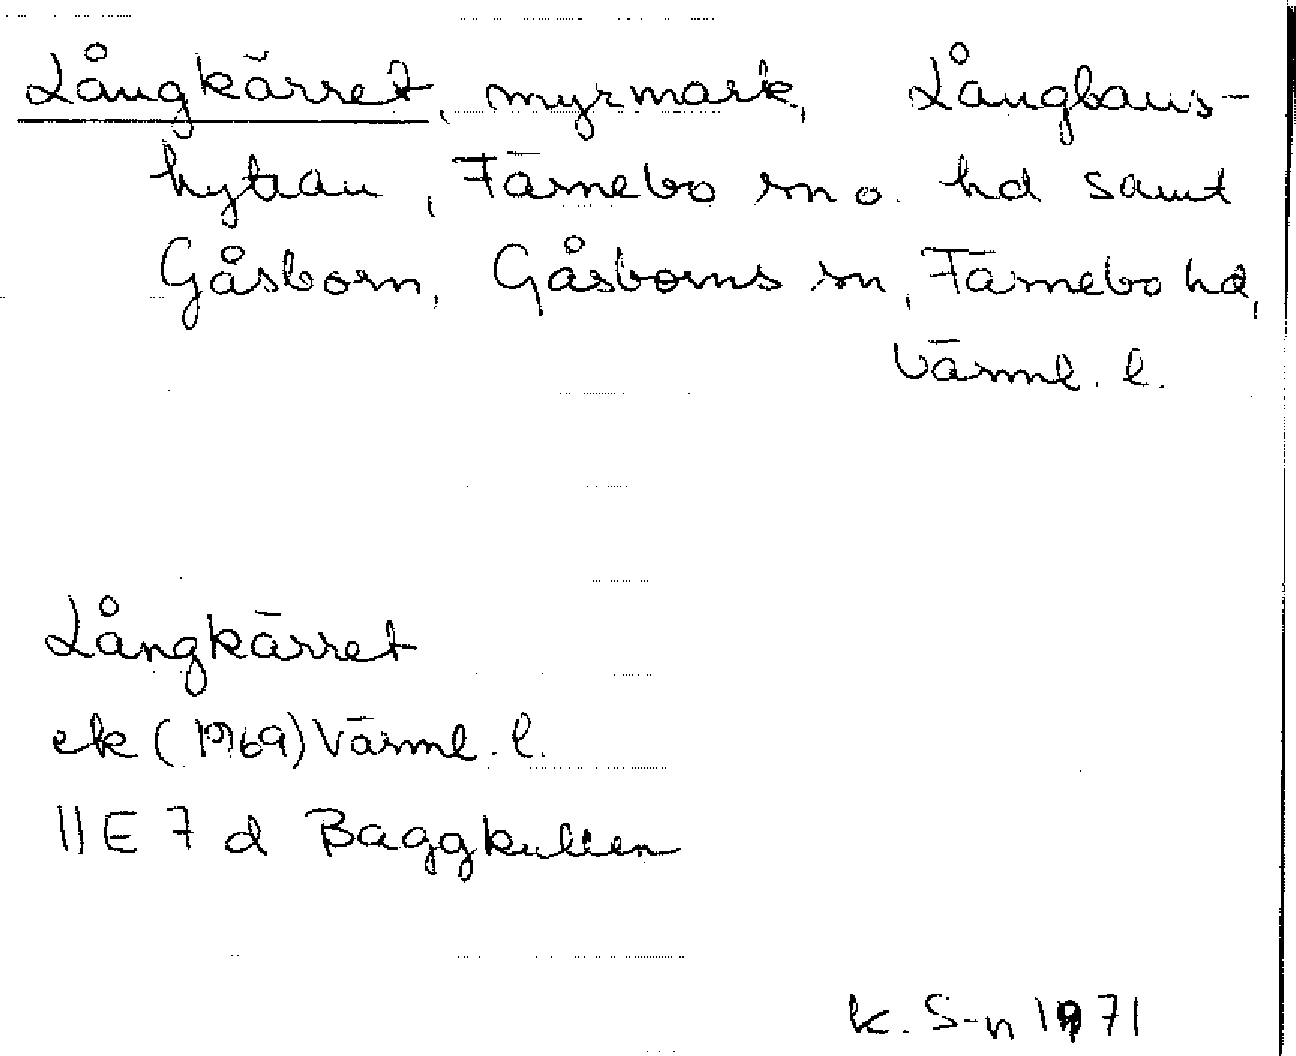 Långkärret, myrmark, Långbans-
hyttan, Färnebo sn o. hd samt
Gåsborn, Gåsborns sn, Färnebo hd,
Värml. l.
Långkärret
ek (1969) Värml. l.
11E 7 d Baggkullen
K. S-n 1971